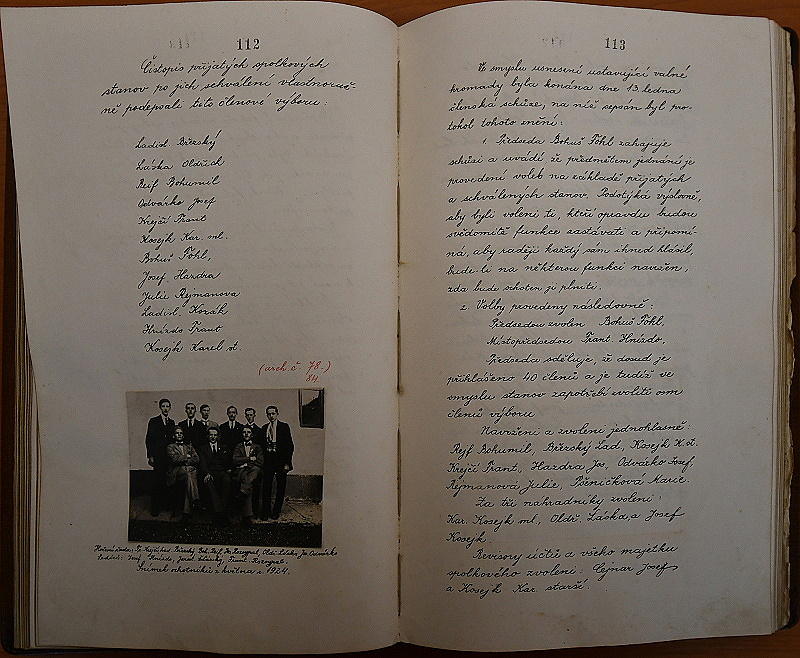 112
Čistopis přijatých spolkových
stanov po jich schválení vlastnoruč-
ně podepsali tito členové výboru:
Ladisl. Březský
Láska Oldřich
Rejf Bohumil
Odvárko Josef
Krejčí Frant
Kosejk Kar. ml.
Bohuš Föhl,
Josef Hazdra
Julie Rejmanova
Ladisl. Kozák
Hnízdo Frant
Kosejk Karel st.
(arch. č. 78.)
84.
Snímek ochotníků z května r. 1924.
113
Ve smyslu usnesení ustavující valné
hromady byla konána dne 13. ledna
členská schůze, na níž sepsán byl pro-
tokol tohoto znění:
1. Předseda Bohuš Föhl zahajuje
schůzi a uvádí že předmětem jednání je
provedení voleb na základě přijatých
a schválených stanov. Podotýká výslovně,
aby byli voleni ti, kteří opravdu budou
svědomitě funkce zastávati a připomí-
ná, aby raději každý sám ihned hlásil,
bude-li na některou funkci navržen,
zda bude schoten ji plniti.
2. Volby provedeny následovně:
Předsedou zvolen Bohuš Föhl,
Místopředsedou Frant. Hnízdo,
Předseda sděluje, že dosud je
přihlášeno 40 členů a je tudíž ve
smyslu stanov zapotřebí zvoliti osm
členů výboru
Navrženi a zvoleni jednohlasně:
Rejf Bohumil, Březský Lad, Kosejk K. st.
Krejčí Frant, Hazdra Jos, Odvárko Josef,
Rejmanová Julie, Marie.
Za tři nahradníky zvoleni:
Kar. Kosejk ml, Oldř. Láska, a Josef
Kosejk.
Revisory účtů a všeho majetku
spolkového zvoleni: Cejnar Josef
a Kosejk Kar. starší.